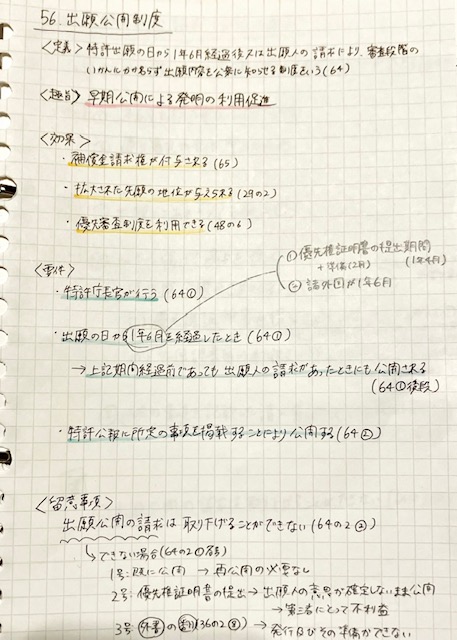 56. 出願公開制度
〈定義〉特許出願の日から1年6月経過後又は出願人の請求により、審査段階の
いかんにかかわらず出願内容を公衆に知らせる制度をいう(64)
〈趣旨〉早期公開による発明の利用促進
〈効果〉
・補償金請求権が付与される(65)
・拡大された先願の地位が与えられる(29の2)
・優先審査制度を利用できる(48の6)
① 優先権証明書の提出期間
+準備(2月) (1年4月)
② 諸外国が1年6月
〈要件〉
・特許庁長官が行う(64①)
・出願の日から1年6月を経過したとき(64①)
→上記期間経過前であっても出願人の請求があったときにも公開される
(64①後段)
・特許公報に所定の事項を掲載することにより公開する(64②)
〈留意事項〉
出願公開の請求は取り下げることができない(64の2②)
↳できない場合(64の2①各号)
1号:既に公開 →再公開の必要なし
2号:優先権証明書の提出→出願人の意思が確定しないまま公開
→第三者にとって不利益
3号:外書の翻(36の2②)→発行及びその準備ができない